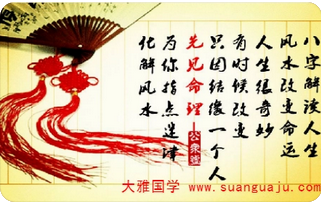 八字解读人生
风水改变命运
人生很奇妙
有时候改变
只因结缘一个人
先见命理
公众号
为你指点迷津
化解风水
大雅国学 www.suanguaju.com